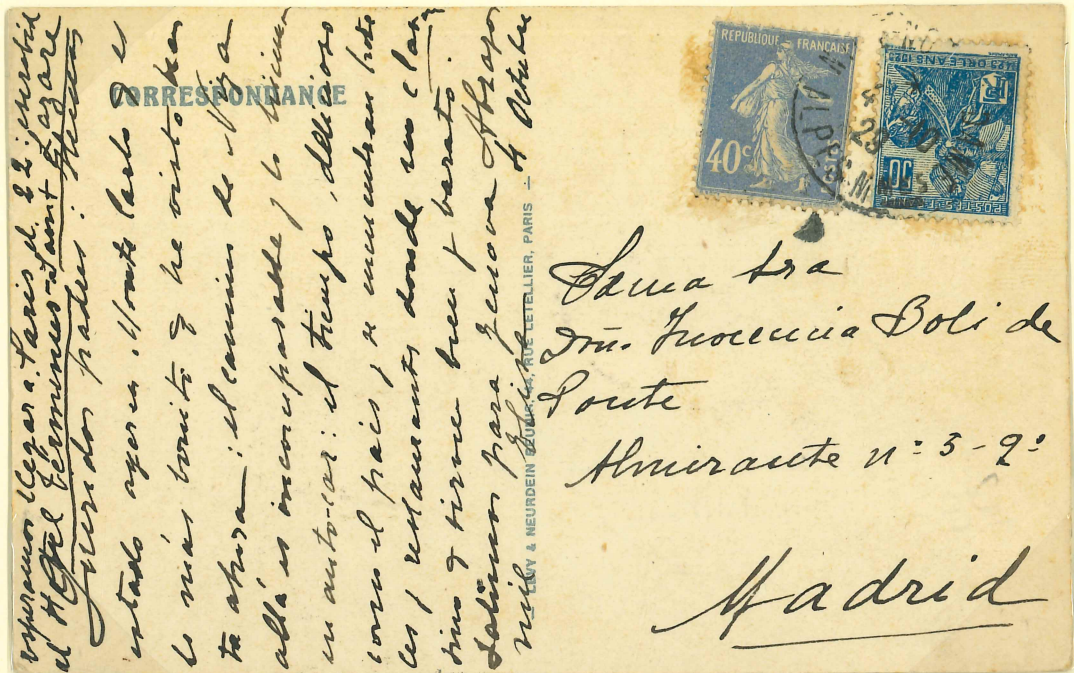 esperamos llegar a Paris el 22; escribid
al Hotel Terminus-Saint Lazare
Queridos padres: Hemos
estado ayer a. Monte Carlo q es
lo más bonito q he visto has
ta ahora: el camino de Niza
allá es incomparable y lo hicimos
en auto-car: el tiempo, delicioso
como el pais; se encuentran hote
les y restaurants donde en
dan y sirven bien y barato.
Salimos para Genova Abrazos
4 Octubre
CORRESPONDANCE
LEVY & NEURDEIN REUNIS, 44, RUE LETELLIER, PARIS
REPUBLIQUE FRANÇAISE
40c
1429 ORLÉANS 1929
RF
50c
POSTES
ALPES-M
4 -10
29
Sra
Inocencia Boli de
Ponte
Almirante nº 3-2º
Madrid